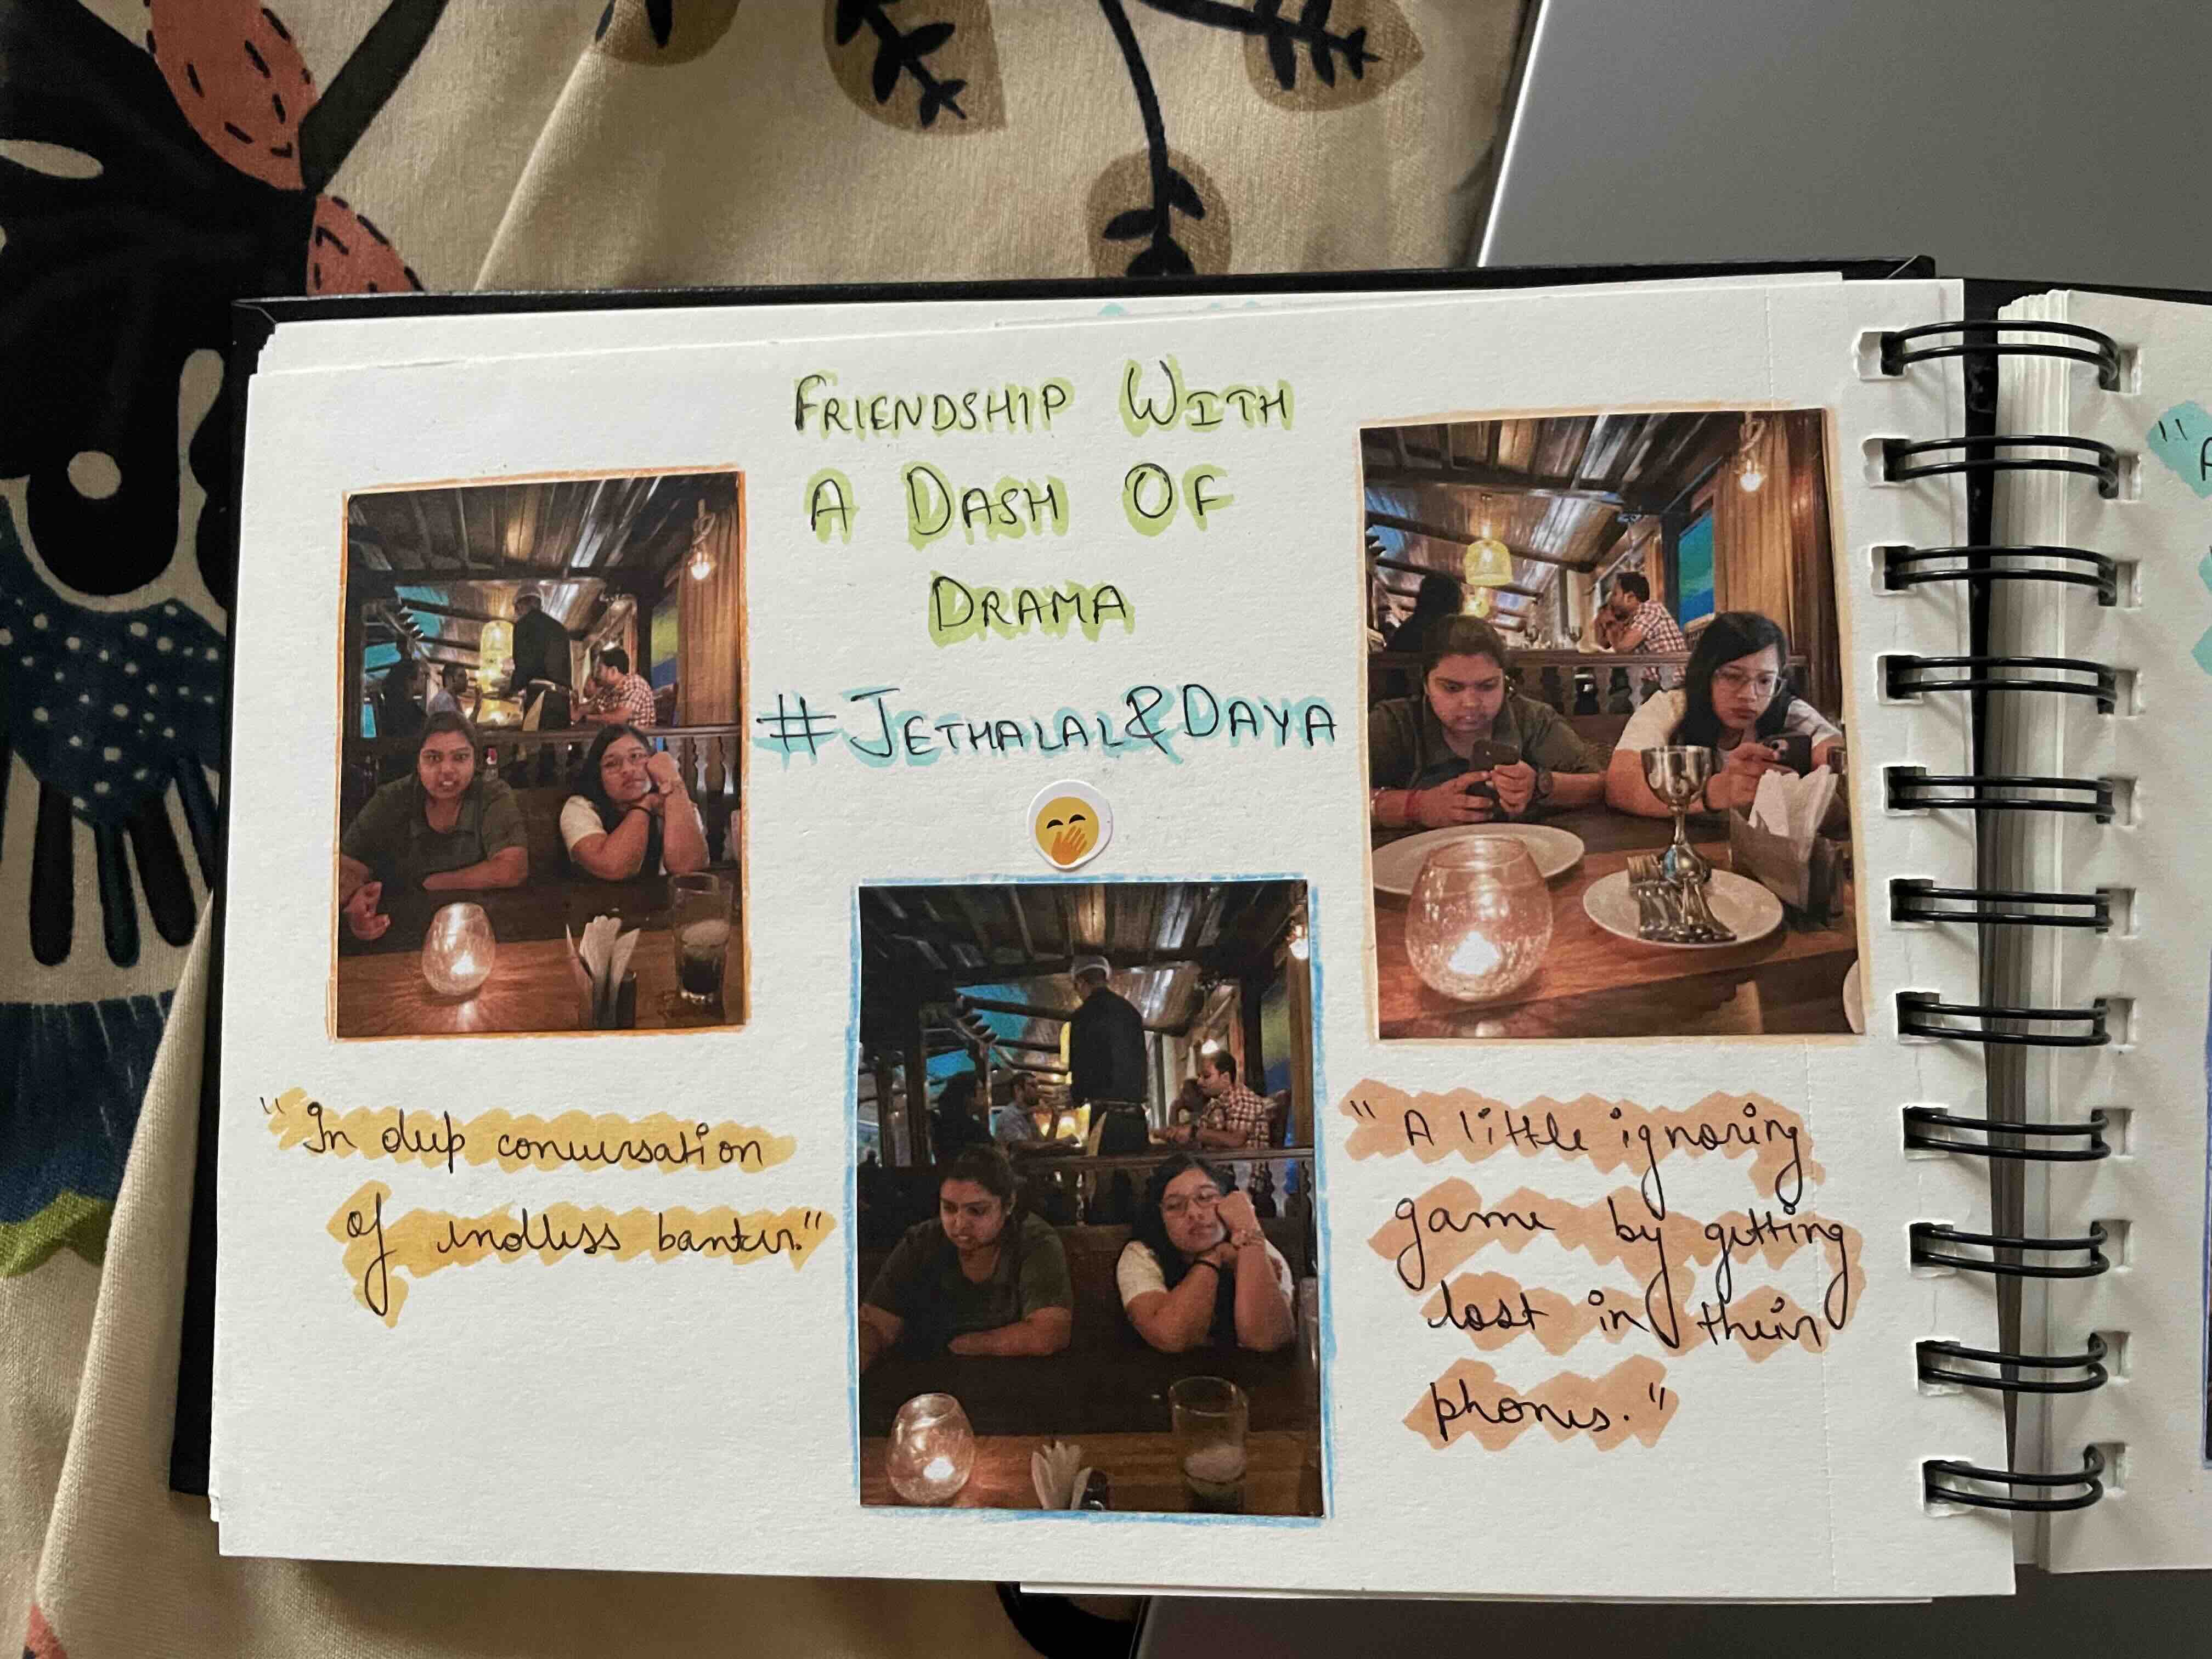 FRIENDSHIP WITH
A DASH OF
DRAMA
#JETHALAL&DAYA
"In deep conversation
of endless banter."
"A little ignoring
game by getting
lost in their
phones."